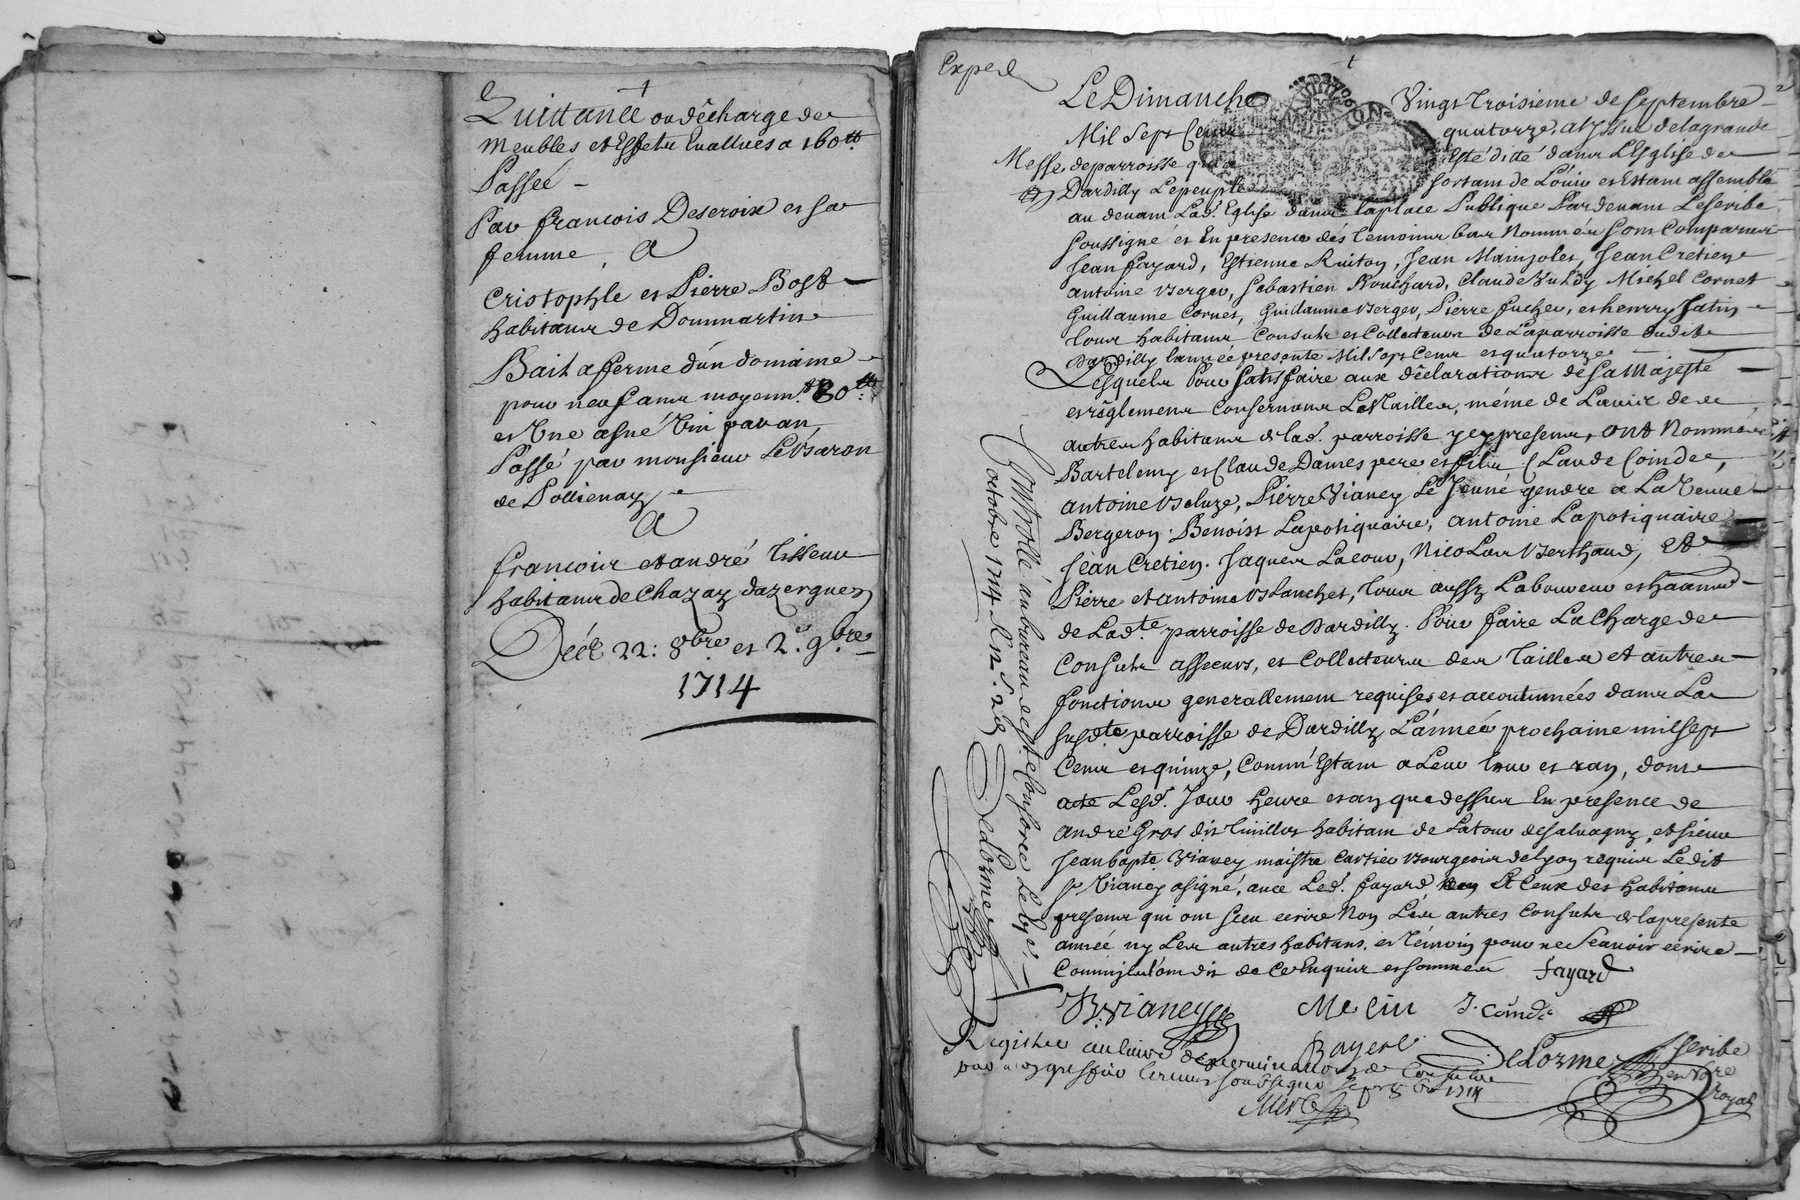 Quittance ou décharge de
Meubles et Effets Evallués a 160tt
Passée
Par francois Descroix et sa
femme, A
Cristophle et Pierre Bost
habitans de Dommartin
Bail a ferme d'un domaine
pour neuf ans moyenn.t 80tt
et Une asne Vin par an,
Passé par monsieur Le Baron
de Pollienay
A
francois et andré Tisseur
habitans de Chazay dazergues
Decl 22: 8bre et 2e 9bre
1714
Exped
Le Dimanche Vingt Troisieme de septembre
Mil Sept Cens quatorze, a l'issue de la grande
Messe de parroisse qui a Esté dite dans L'Esglise de
Dardilly Le peuple sortant de L'ouir et Estant assemblé
au devant Lad. Eglise dans la place Publique Pardevant Le scribe
soussigné et En presence des temoins bas Nommes sont Comparus
Jean fayard, Estienne Ruiton, Jean Mainjoles, Jean Cretien
antoine Berger, Sebastien Bouchard, Claude Vuldy Michel Cornet
Guillaume Cornet, Guillaume Berger, Pierre fucher, et henry fatin
tous habitans Consuls et Collecteurs de La parroisse dudit
Dardilly l'année presente Mil Sept Cens et quatorze
Lesquels Pour satisfaire aux déclarations de sa Majesté
et réglemens Consernans Les Tailles, méme de L'avis des
autres habitans de lad. parroisse y presens, ont Nommé
Bartelemy et Claude Dames pere et fils Claude Coinde,
antoine Beluze, Pierre Vianey Le Jeune gendre a La Veuve
Bergeron; Benoist Lapotiquaire, antoine Lapotiquaire
Jean Cretien, Jaques Lacour, Nicolas Berthaud, Et
Pierre et antoine Blanchet, tous aussy Laboureurs et habitans
de Lad.te parroisse de Dardilly. Pour faire La Charge de
Consuls asseeurs, et Collecteurs des Tailles et autres
fonctions generallement requises et accoutumées dans La
susd.te parroisse de Dardilly L'année prochaine mil sept
Cens et quinze, Comm'Estant a Leur tour et ran, dont
acte Lesd. Jour heure et an que dessus En presence de
andré Gros dit Tivillot habitant de Latour de salvagny, et sieur
Jean bapte Vianey maistre Cartier Bourgeois de Lyon requis Ledit
sr Vianey a signé, avec Led. fayard Et Ceux des habitans
presens qui ont sceu ecrire Non Les autres Consuls de la presente
année ny Les autres habitans, et témoin pour ne Scavoir ecrire
Comm'ils l'ont dit de Ce Enquis et sommés fayard
B. Vianey Merlin J. Coinde
Bayere DeLorme scribe
et No.re royal
Registre au livre de nominations de Consuls
par moy greffier Commis soussigné 8bre 1714
Merle
Controllé au bureau de
octobre 1714 R 12s
Delorme